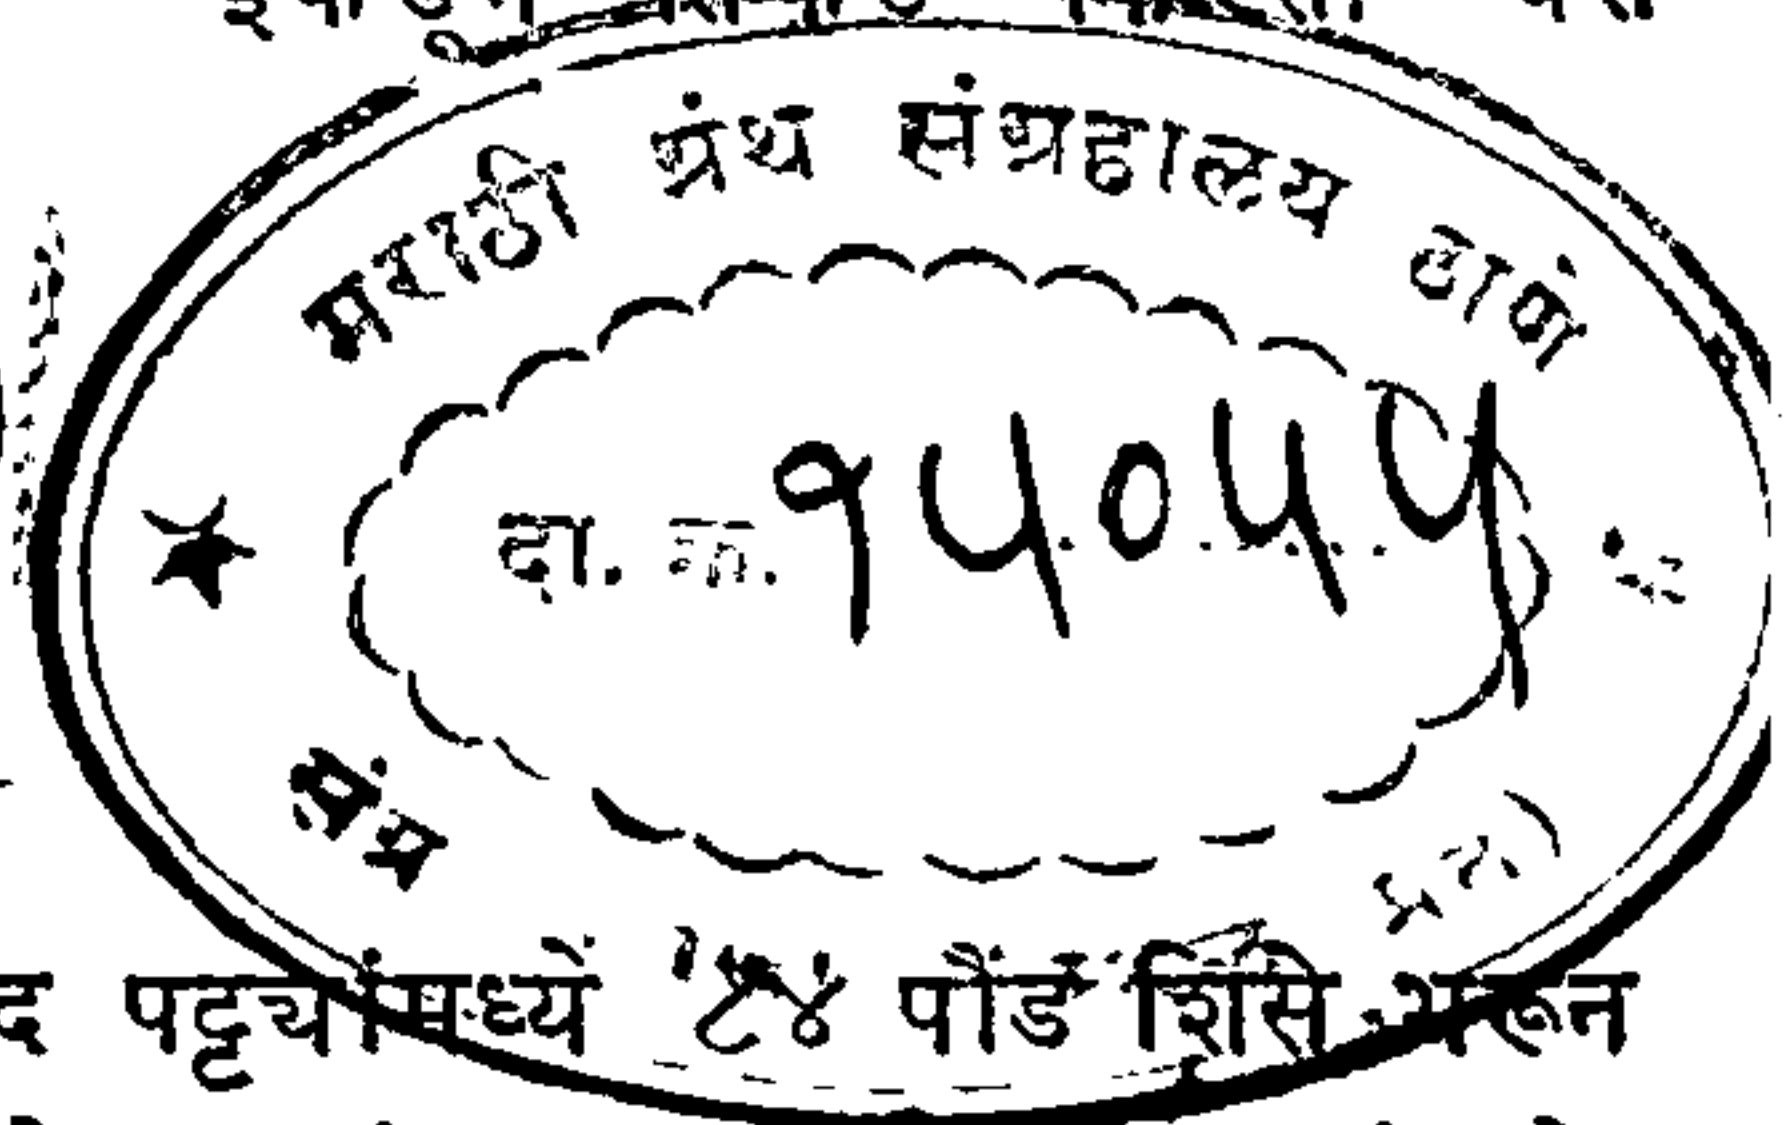 मराठी ग्रंथ संग्रहालय ठाणें
दा. क्र. १५०५५
संग्र
द पट्ट्यांमध्यें ८४ पौंड शिसे भरून